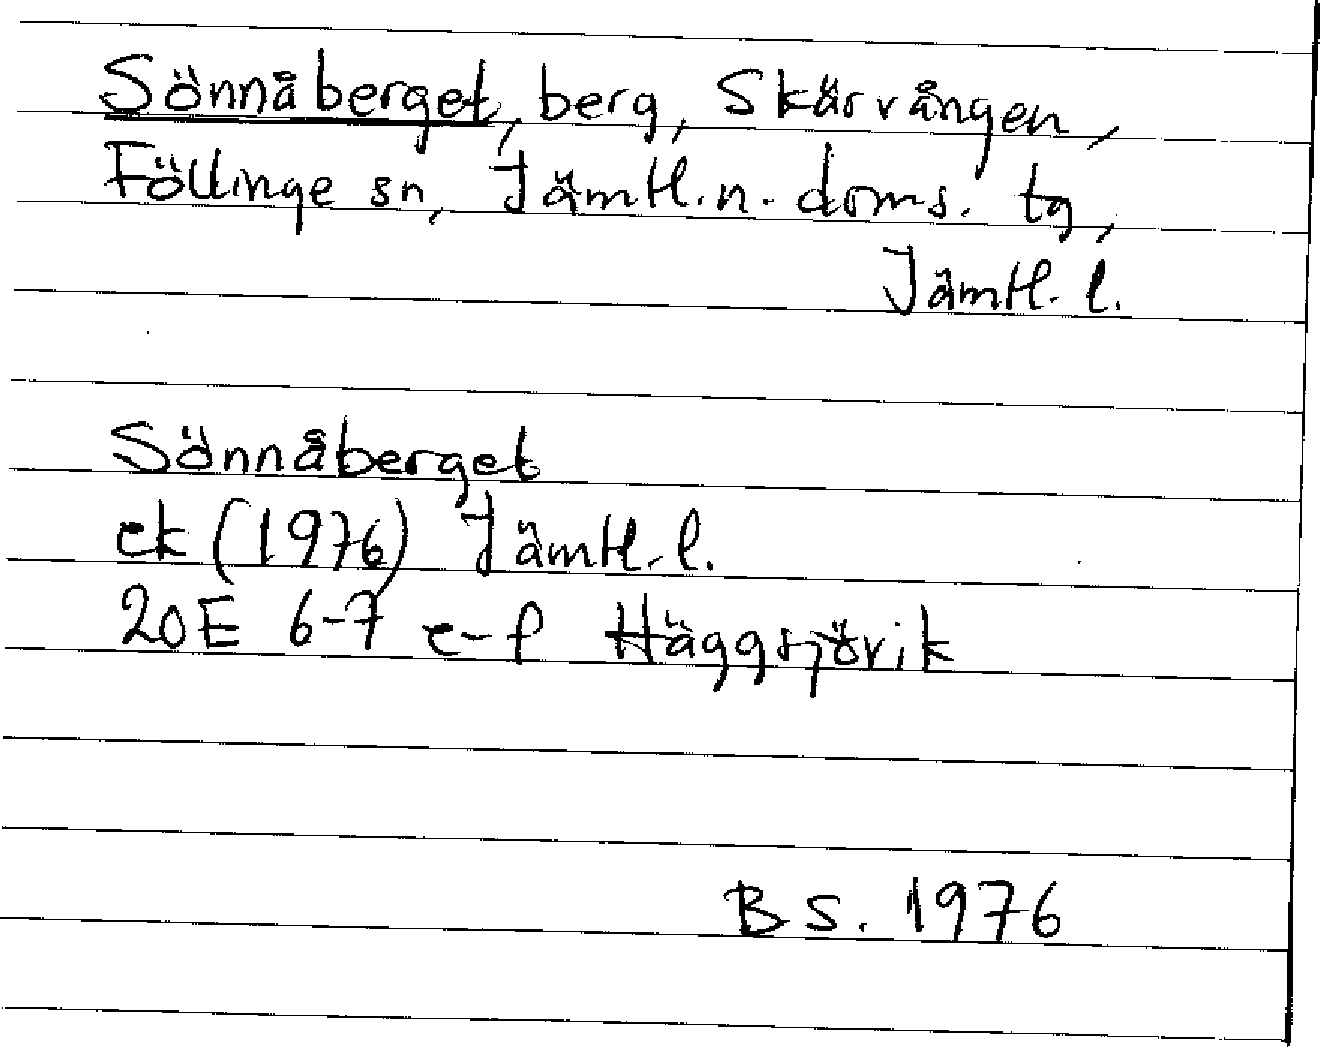 Sönnåberget, berg, Skärvången,
Föllinge sn, Jämtl.n. doms. tg,
Jämtl. l.
Sönnåberget
ek (1976) Jämtl. l.
20E 6-7 e-f Häggsjövik
BS. 1976